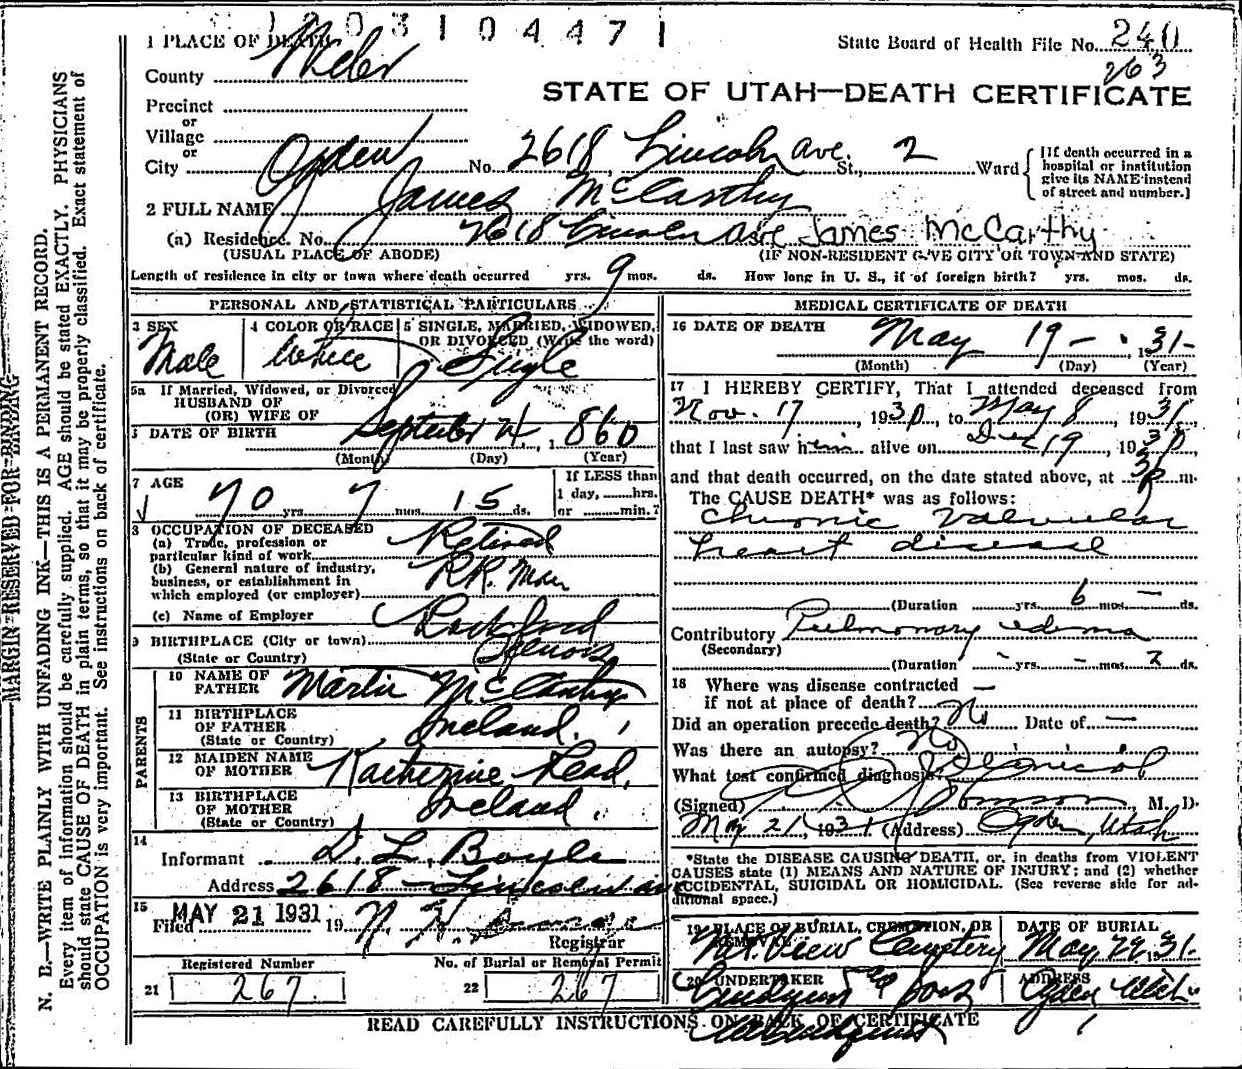 1203104471
1 PLACE OF DEATH
State Board of Health File No. 240
263
County Weber
STATE OF UTAH—DEATH CERTIFICATE
Precinct
or
Village
or
City Ogden No. 2618 Lincoln Ave. St., 2 Ward
[If death occurred in a hospital or institution give its NAME instead of street and number.]
2 FULL NAME James McCarthy
(a) Residence. No. 2618 Lincoln Ave James McCarthy
(USUAL PLACE OF ABODE) (IF NON-RESIDENT GIVE CITY OR TOWN AND STATE)
Length of residence in city or town where death occurred yrs. 9 mos. ds. How long in U. S., if of foreign birth? yrs. mos. ds.
PERSONAL AND STATISTICAL PARTICULARS
3 SEX
Male
4 COLOR OR RACE
White
5 SINGLE, MARRIED, WIDOWED,
OR DIVORCED (Write the word)
Single
5a If Married, Widowed, or Divorced
HUSBAND OF
(OR) WIFE OF
DATE OF BIRTH September 4, 1860
(Month) (Day) (Year)
7 AGE
70 yrs. 7 mos. 15 ds.
If LESS than
1 day, ......hrs.
or ......min.?
8 OCCUPATION OF DECEASED
(a) Trade, profession or
particular kind of work Retired
(b) General nature of industry,
business, or establishment in
which employed (or employer) RR. Man
(c) Name of Employer
9 BIRTHPLACE (City or town) Rockford
(State or Country) Illinois
PARENTS
10 NAME OF
FATHER Martin McCarthy
11 BIRTHPLACE
OF FATHER Ireland.
(State or Country)
12 MAIDEN NAME
OF MOTHER Katherine Read.
13 BIRTHPLACE
OF MOTHER Ireland.
(State or Country)
14
Informant D. L. Boyle
Address 2618 - Lincoln av
15
Filed MAY 21 1931 19
Registrar
Registered Number
21 267.
No. of Burial or Removal Permit
22 267
MEDICAL CERTIFICATE OF DEATH
16 DATE OF DEATH May 19 - 1931-
(Month) (Day) (Year)
17 I HEREBY CERTIFY, That I attended deceased from
Nov. 17, 1930, to May 8, 1931,
that I last saw him alive on Dec 19, 1930,
and that death occurred, on the date stated above, at 3 p m.
The CAUSE DEATH* was as follows:
Chronic Valvular
heart disease
(Duration yrs. 6 mos. — ds.
Contributory Pulmonary edema
(Secondary)
(Duration - yrs. - mos. 2 ds.
18 Where was disease contracted —
if not at place of death?
Did an operation precede death? No Date of —
Was there an autopsy? No
What test confirmed diagnosis? Clinical
(Signed) M. D.
May 21, 1931 (Address) Ogden, Utah
*State the DISEASE CAUSING DEATH, or, in deaths from VIOLENT
CAUSES state (1) MEANS AND NATURE OF INJURY; and (2) whether
ACCIDENTAL, SUICIDAL OR HOMICIDAL. (See reverse side for additional space.)
19 PLACE OF BURIAL, CREMATION, OR
REMOVAL
Mt. View Cemetery
DATE OF BURIAL
May 22, 31.
20 UNDERTAKER
Lindquist & Sons
ADDRESS
Ogden Utah
READ CAREFULLY INSTRUCTIONS ON BACK OF CERTIFICATE
MARGIN RESERVED FOR BINDING
N. B.—WRITE PLAINLY WITH UNFADING INK—THIS IS A PERMANENT RECORD.
Every item of information should be carefully supplied. AGE should be stated EXACTLY. PHYSICIANS
should state CAUSE OF DEATH in plain terms, so that it may be properly classified. Exact statement of
OCCUPATION is very important. See instructions on back of certificate.